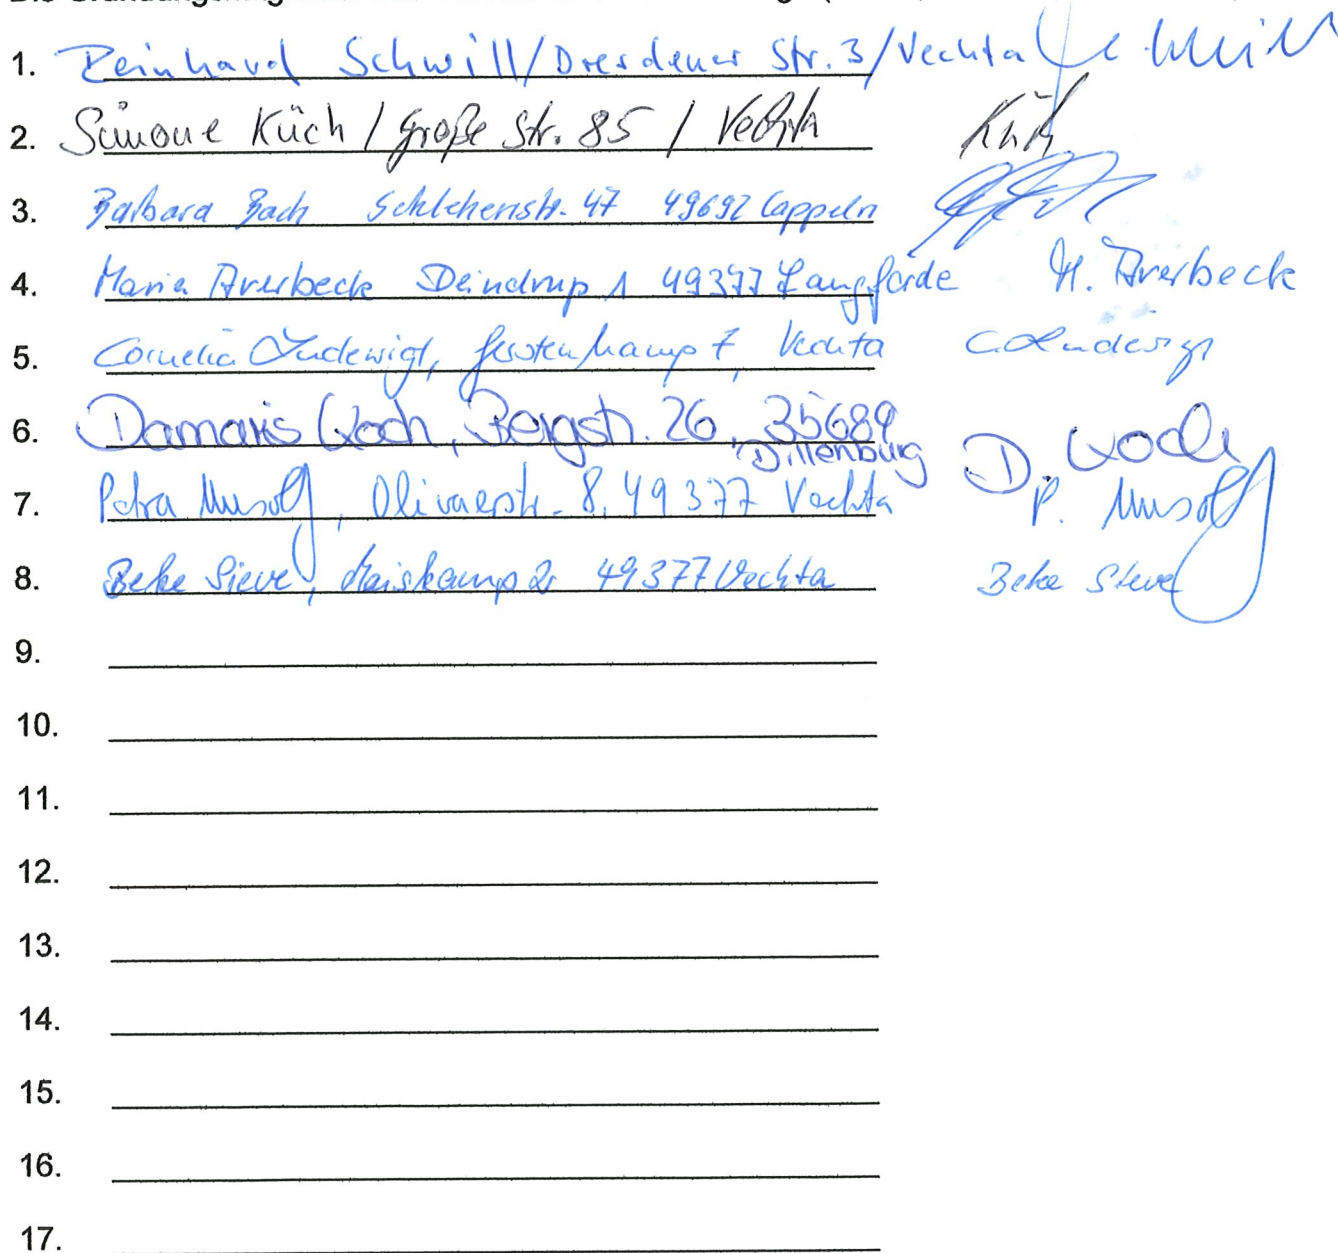 1. Reinhard Schwill/Dresdener Str. 3/Vechta
2. Simone Küch / Große Str. 85 / Vechta Küch
3. Barbara Bach 47 49692 Cappeln
4. Maria Averbeck Deindrup 1 49377 Langförde M. Averbeck
5. Cornelia Ludewigt, Gerstenkamp 7, Vechta C. Ludewigt
6. Damaris Koch, Bergstr. 26, 35689 D. Koch
Dillenburg
7. Petra Musolf, Olivaerstr. 8, 49377 Vechta P. Musolf
8. Beke Sieve, Maiskamp 2 49377 Vechta Beke Sieve
9.
10.
11.
12.
13.
14.
15.
16.
17.